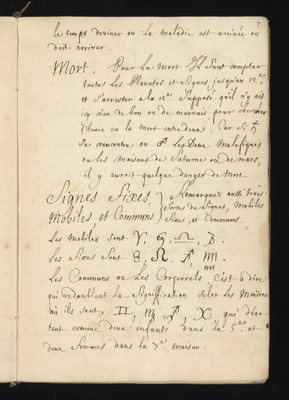 le temps deviner ou La maladie est arrivée ou
doit arriver.
Mort. Pour La mort Il faut compter
toutes Les Planetes et Signes jusqu'au 12.e
et S'arrester a la 12.e Supposé qu'il n'y ait
icy rien de bon ou de mauvais pour
l'heure en la mort Car Si ♄
Se rencontre ou ♂ Les Deux Malefiques
ou les maisons de Saturne ou de mars,
il y auroit quelque danger de Mort.
Signes Fixes, Remarquez aussi trois
Mobiles et Communs Sortes de Signes, Mobiles
Fixes, et Communs.
Les Mobiles sont ♈, ♋, ♎, ♑.
Les Fixes Sont ♉, ♌, ♏.
Les Communs ou Les Corporels, c'est a dire
qui redoublent la Signification selon Les Maisons
où ils sont, ♊, ♍, ♐, ♓, qui déno-
tent comme deux enfants dans La 5.e et
deux femmes dans la 7.e maison.